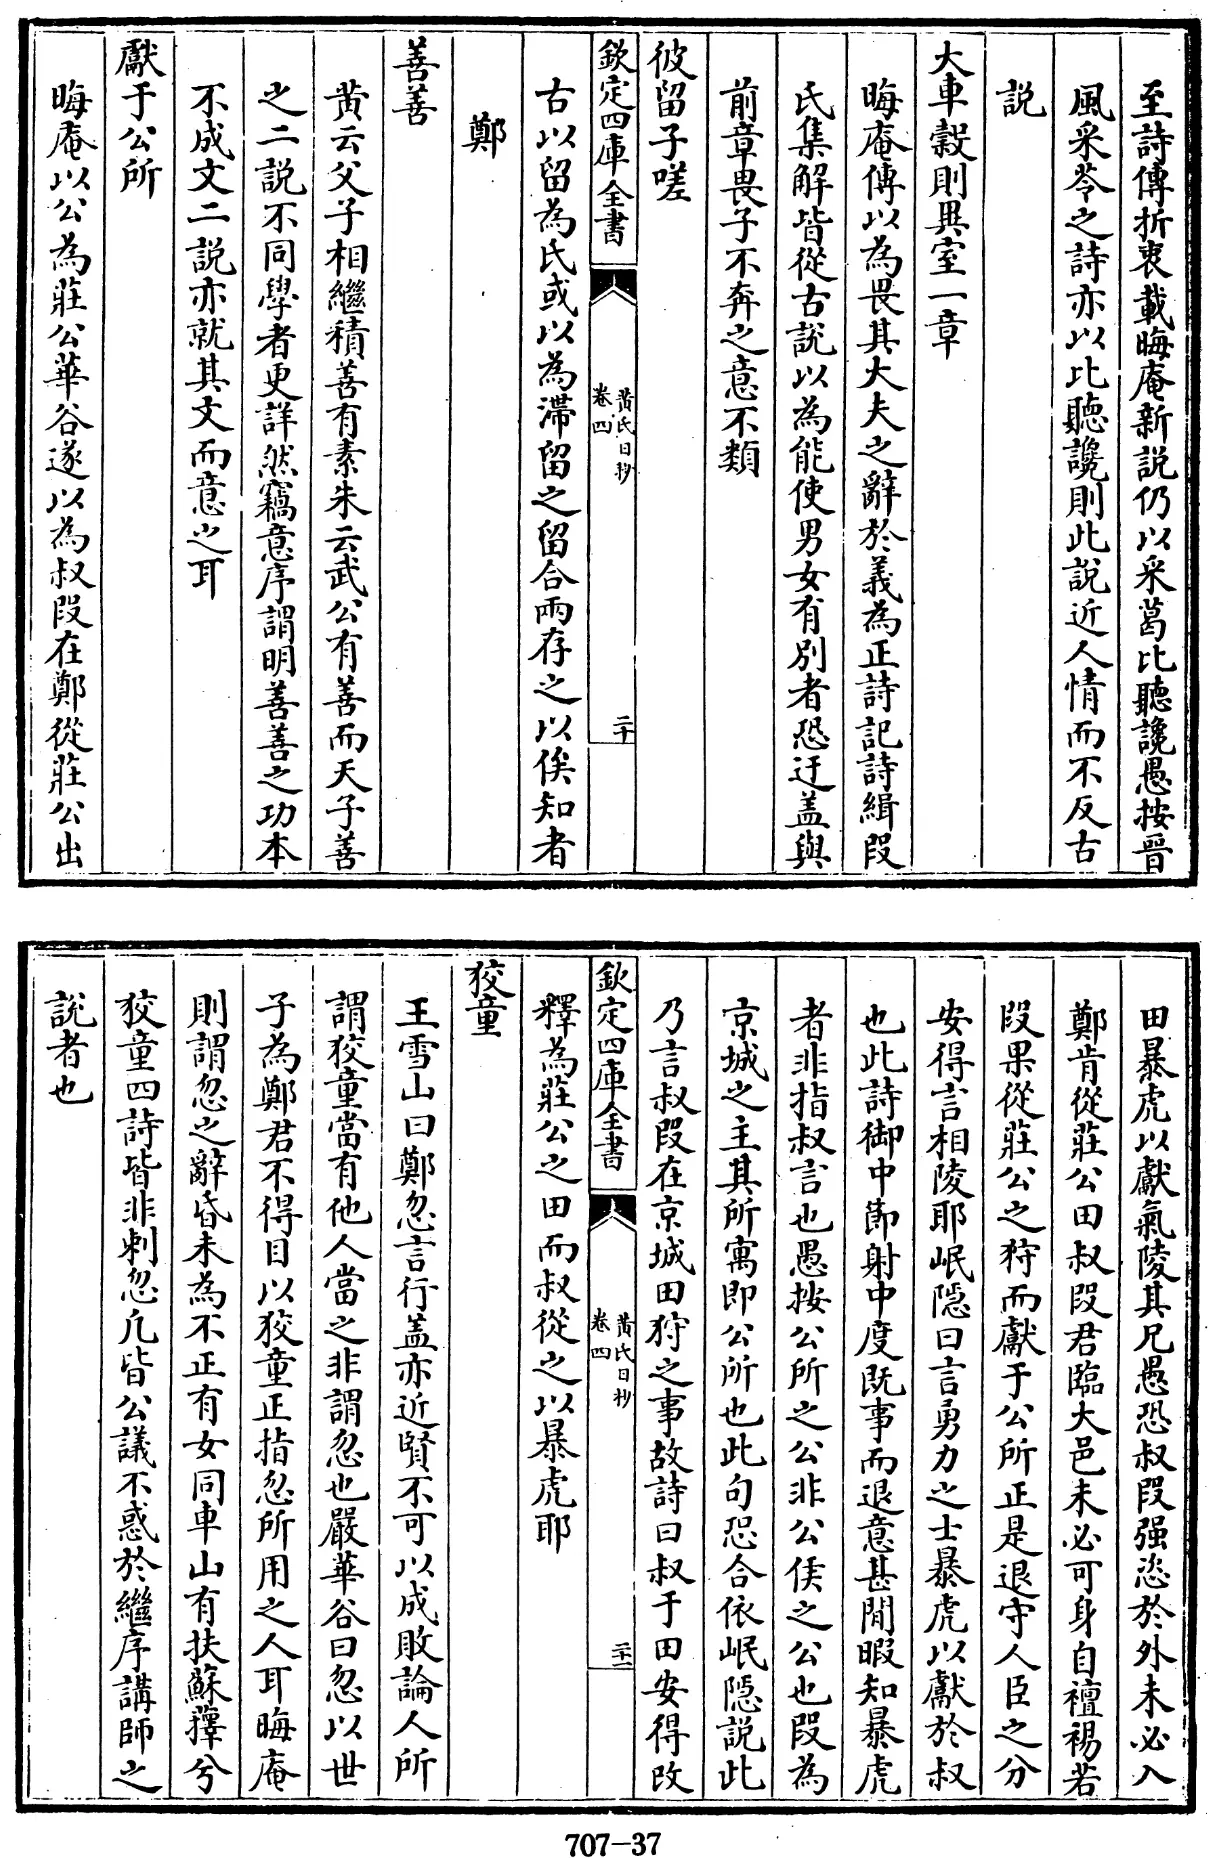 至詩傳折衷載晦庵新説仍以采葛比聽讒愚按晉
風采苓之詩亦以比聽讒則此説近人情而不反古
説
大車穀則異室一章
晦庵傳以為畏其大夫之辭於義為正詩記詩緝段
氏集解皆從古説以為能使男女有别者恐迂盖與
前章畏子不奔之意不類
彼留子嗟
欽定四庫全書
黄氏日抄
卷四
二十
古以留為氏或以為滯留之留合兩存之以俟知者
鄭
善善
黄云父子相繼積善有素朱云武公有善而天子善
之二説不同學者更詳然竊意序謂明善善之功本
不成文二説亦就其文而意之耳
獻于公所
晦庵以公為莊公華谷遂以為叔段在鄭從莊公出
田暴虎以獻氣陵其兄愚恐叔段强恣於外未必入
鄭肯從莊公田叔段君臨大邑未必可身自襢裼若
段果從莊公之狩而獻于公所正是退守人臣之分
安得言相陵耶岷隠曰言勇力之士暴虎以獻於叔
也此詩御中節射中度既事而退意甚閒暇知暴虎
者非指叔言也愚按公所之公非公侯之公也段為
京城之主其所寓即公所也此句恐合依岷隠説此
乃言叔段在京城田狩之事故詩曰叔于田安得改
欽定四庫全書
黄氏日抄
卷四
二十一
釋為莊公之田而叔從之以暴虎耶
狡童
王雪山曰鄭忽言行盖亦近賢不可以成敗論人所
謂狡童當有他人當之非謂忽也嚴華谷曰忽以世
子為鄭君不得目以狡童正指忽所用之人耳晦庵
則謂忽之辭昏未為不正有女同車山有扶蘇蘀兮
狡童四詩皆非刺忽凡皆公議不惑於繼序講師之
説者也
707-37